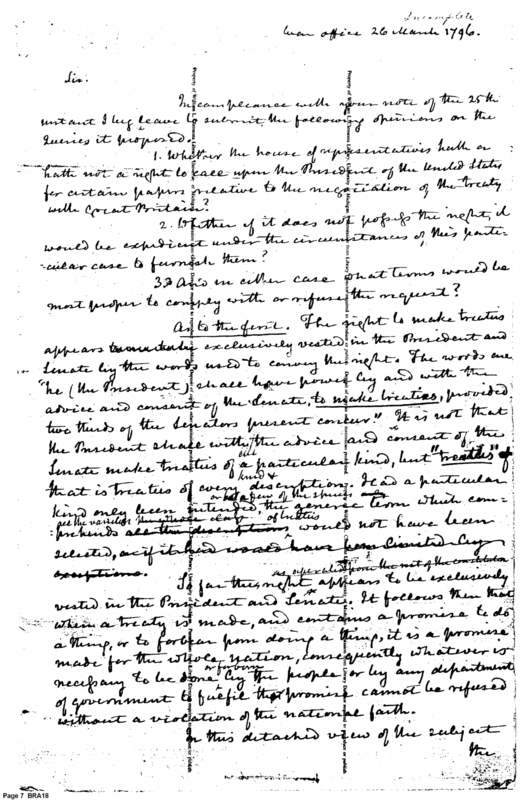 Incomplete
War office 26 March 1796.
Sir:
In compliance with your note of the 25th
instant I beg leave to submit the following opinions on the
queries it proposed.
1. Whether the house of representatives hath or
hath not a right to call upon the President of the United States
for certain papers relative to the negociation of the treaty
with Great Britain?
2. Whether if it does not possess the right, it
would be expedient under the circumstances of this parti-
-cular case to furnish them?
3. And in either case what terms would be
most proper to comply with or refuse the request?
As to the first. The right to make treaties
appears exclusively vested in the President and
Senate by the words used to convey the right. The words are
"he (the President) shall have power by and with the
advice and consent of the Senate, to make treaties, provided
two thirds of the Senators present concur." It is not that
the President shall with the advice and consent of the
Senate make treaties of a particular kind, but "treaties"
that is treaties of every description. Had a particular
kind &
kind only been intended, the generic term which com-
or a few of the species
-prehends all the descriptions would not have been
all the varieties of treaties
selected, as if it had would have been limited by
exceptions.
as separated from the rest of the constitution
So far this right appears to be exclusively
vested in the President and Senate. It follows then that
when a treaty is made, and contains a promise to do
a thing, or to forbear from doing a thing, it is a promise
made for the whole nation, consequently whatever is
or forborne
necessary to be done by the people or by any department
of government to fulfil that promise cannot be refused
without a violation of the national faith.
In this detached view of the subject
the
Page 7 BRA18